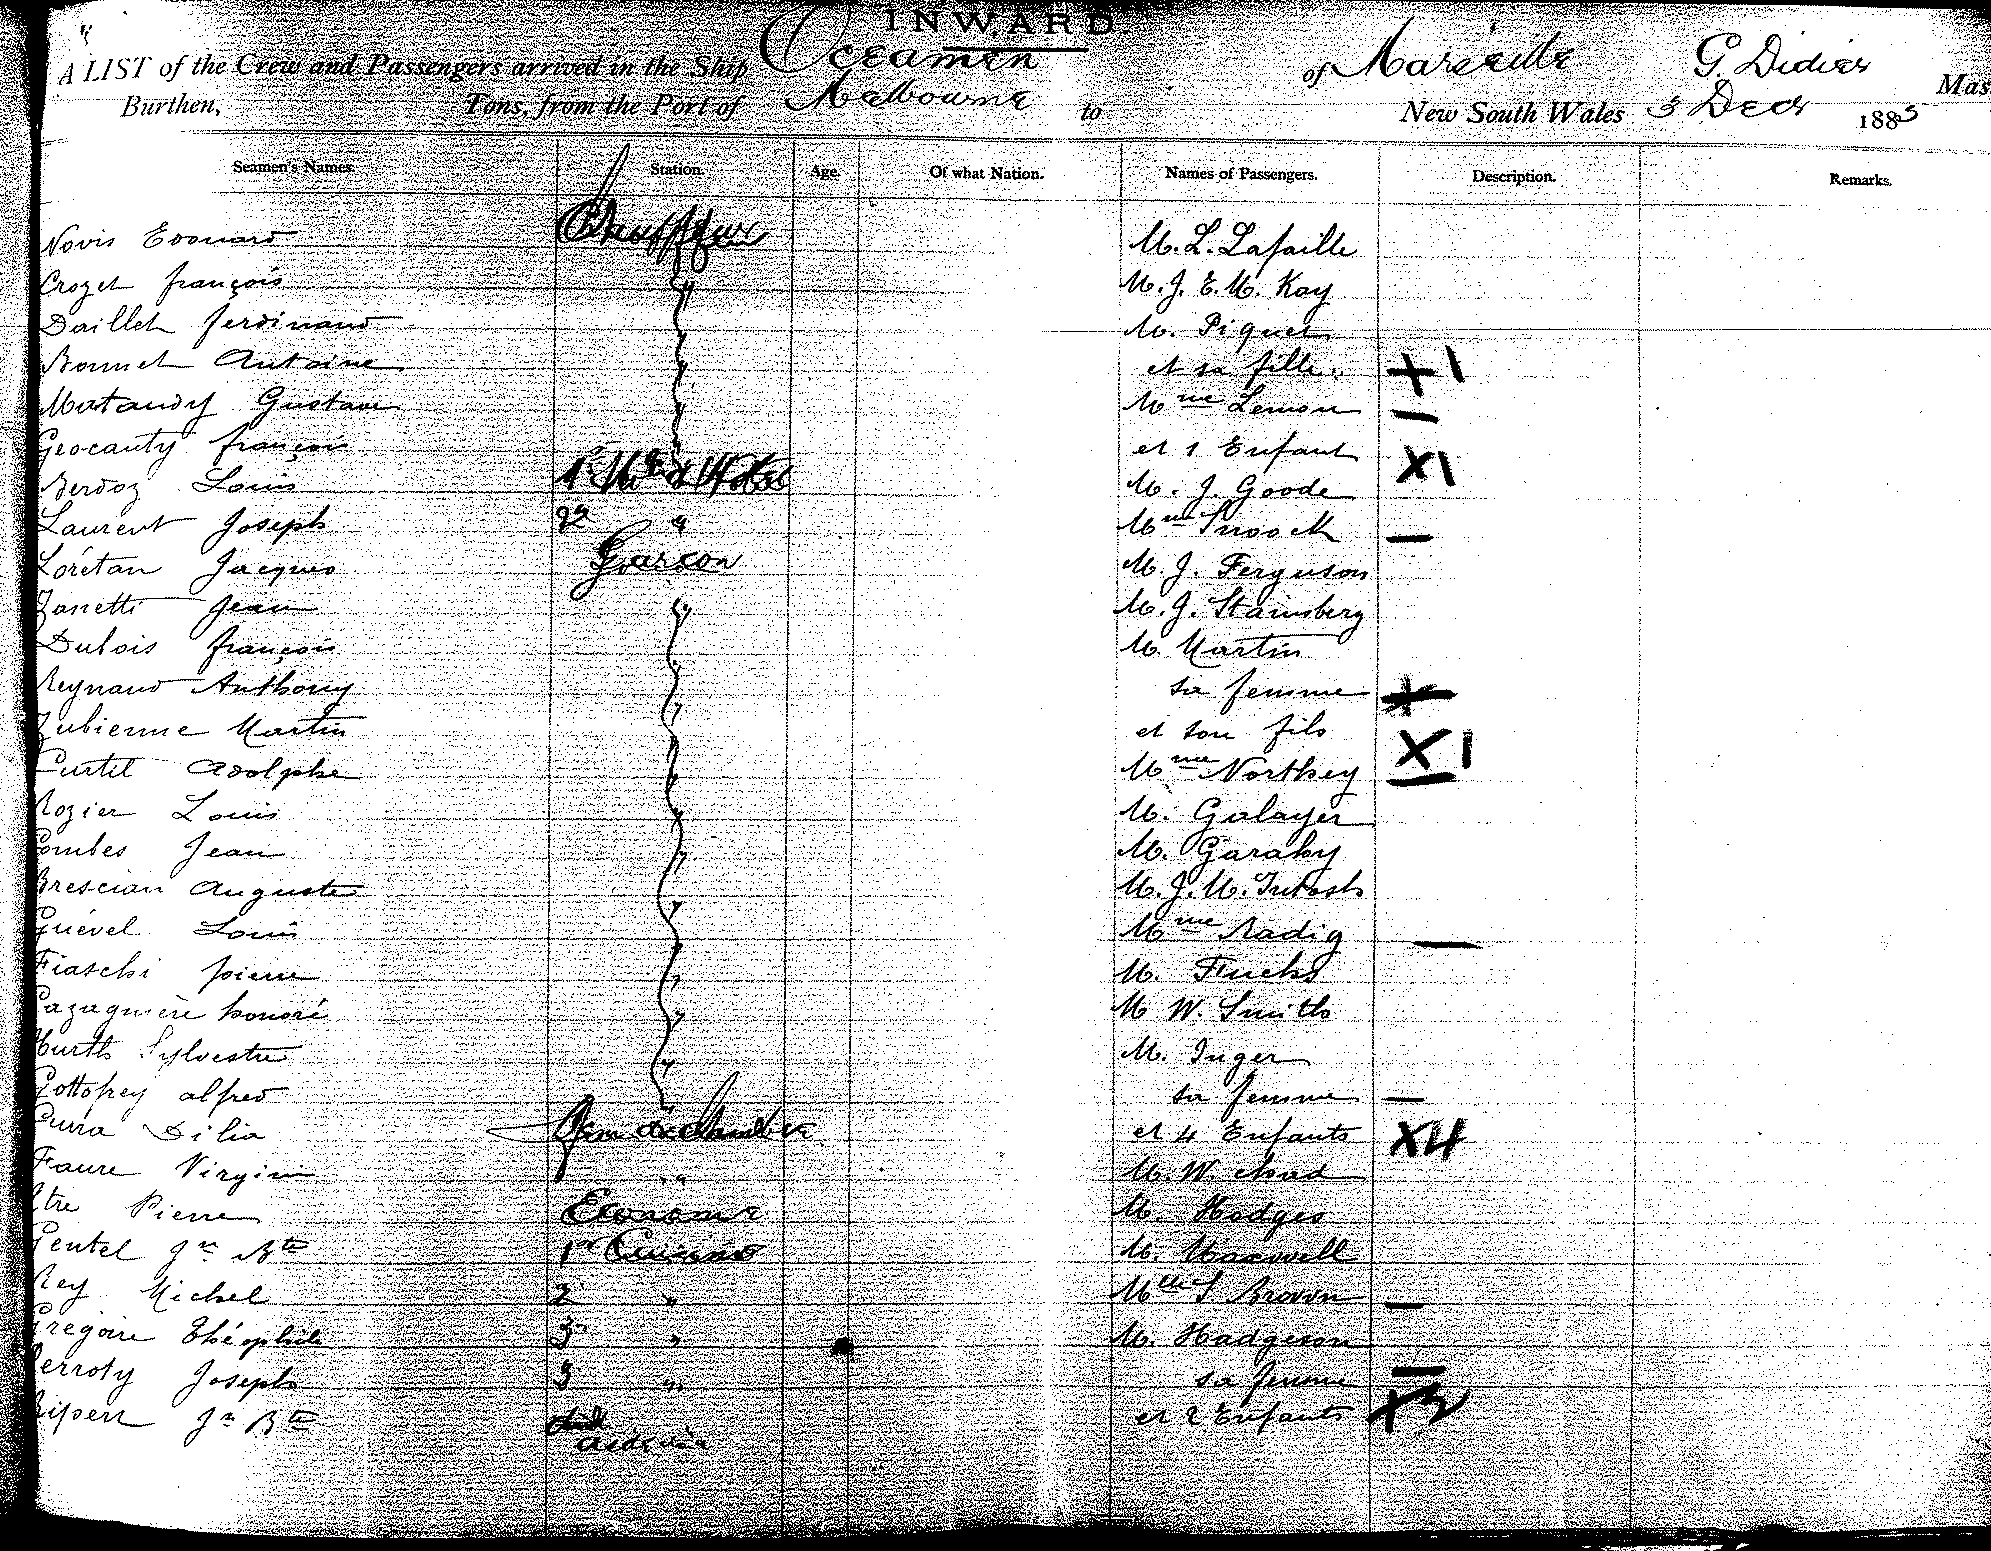 INWARD.
A LIST of the Crew and Passengers arrived in the Ship Oceanien of Marseille G. Didier Mas
Burthen, Tons, from the Port of Melbourne to New South Wales 3 Decr 1883
Seamen's Names. Station. Age. Of what Nation. Names of Passengers. Description. Remarks.
Novis Edouard Chauffeur M. L. Lafaille
Crozet françois " M. J. E. M. Kay
Daillet ferdinand " M. Piquet
Bonnet Antoine " et sa fille X 1
Matandy Gustave " Mme Lemon —
Geocanty françois " et 1 Enfant X 1
Berdoz Louis 1r Mtre d'Hôtel M. J. Goode
Laurent Joseph 2e " Mme Snook —
Lorétan Jacques Garçon M. J. Ferguson
Zanetti Jean " M. J. Stainsbery
Dubois françois " M. Martin
Reynaud Anthony " sa femme
Zubienne Martin " et son fils X 1
Curtil Adolphe " Mme Northey —
Rozier Louis " M. Galayer
Combes Jean " M. Garaky
Brescian Auguste " M. J. M. Intosh
Griével Louis " Mme Radig —
Fiaschi pierre " M. Fuchs
Cazagnière honoré " M W. Smith
Hurth Sylvestre " M. Inger
Gottofrey alfred " sa femme —
Curra Dilia fem de chambre et 4 Enfants X4
Faure Virginie " M. W.
Pierre Econome M. Hodges
Gentel Jn Bte 1er Cuisinier M. Maxwell
Rey Michel 2 " Mlle S Brown —
Grégoire Théophile 3 " M. Hadgeson
Perroty Joseph 3 " sa femme —
Ripert Jn Bte et 2 Enfants X2